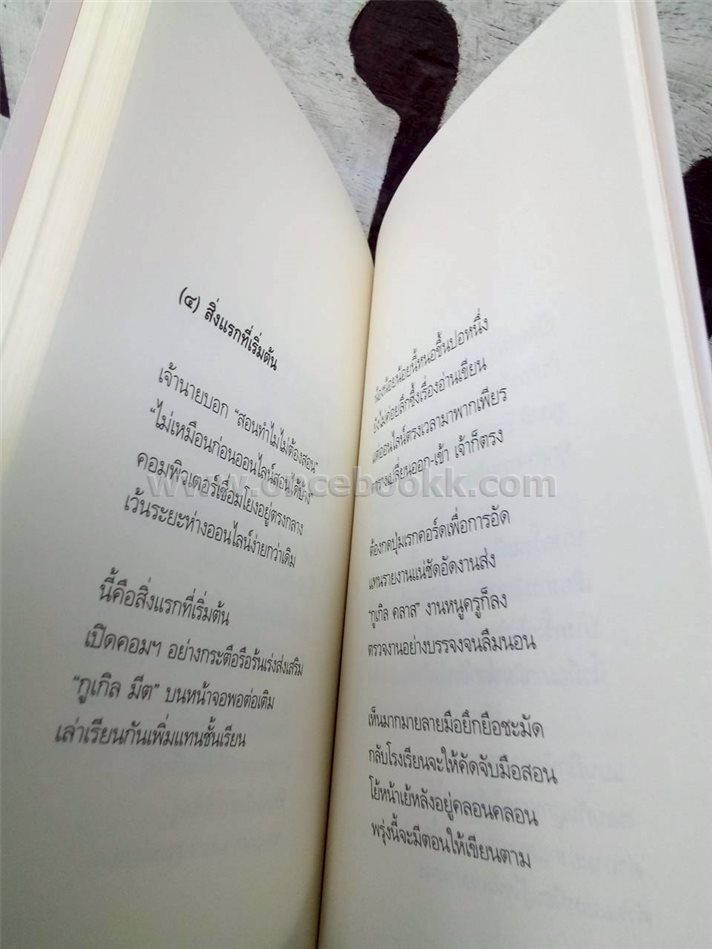 (๔) สิ่งแรกที่เริ่มต้น
เจ้านายบอก “สอนทำไมไม่ต้องสอน”
“ไม่เหมือนก่อนออนไลน์สอนได้บ้าง”
คอมพิวเตอร์เชื่อมโยงอยู่ตรงกลาง
เว้นระยะห่างออนไลน์ง่ายกว่าเดิม
นี้คือสิ่งแรกที่เริ่มต้น
เปิดคอมฯ อย่างกระตือรือร้นเร่งส่งเสริม
“กูเกิล มีต” บนหน้าจอพอต่อเติม
เล่าเรียนกันเพิ่มแทนชั้นเรียน
น้อยนี้หนอชั้นปอหนึ่ง
ลึกซึ้งเรื่องอ่านเขียน
ออนไลน์ตรงเวลามาพากเพียร
เปลี่ยนออก-เข้า เจ้าก็ตรง
ต้องกดปุ่มเรกคอร์ดเพื่อการอัด
แทนรายงานแน่ชัดอัดงานส่ง
“กูเกิล คลาส” งานหนูครูก็ลง
ตรวจงานอย่างบรรจงจนลืมนอน
เห็นมากมายลายมือยึกยือชะมัด
กลับโรงเรียนจะให้คัดจับมือสอน
โย้หน้าเย้หลังอยู่คลอนคลอน
พรุ่งนี้จะมีตอนให้เขียนตาม
www.oncebookk.com